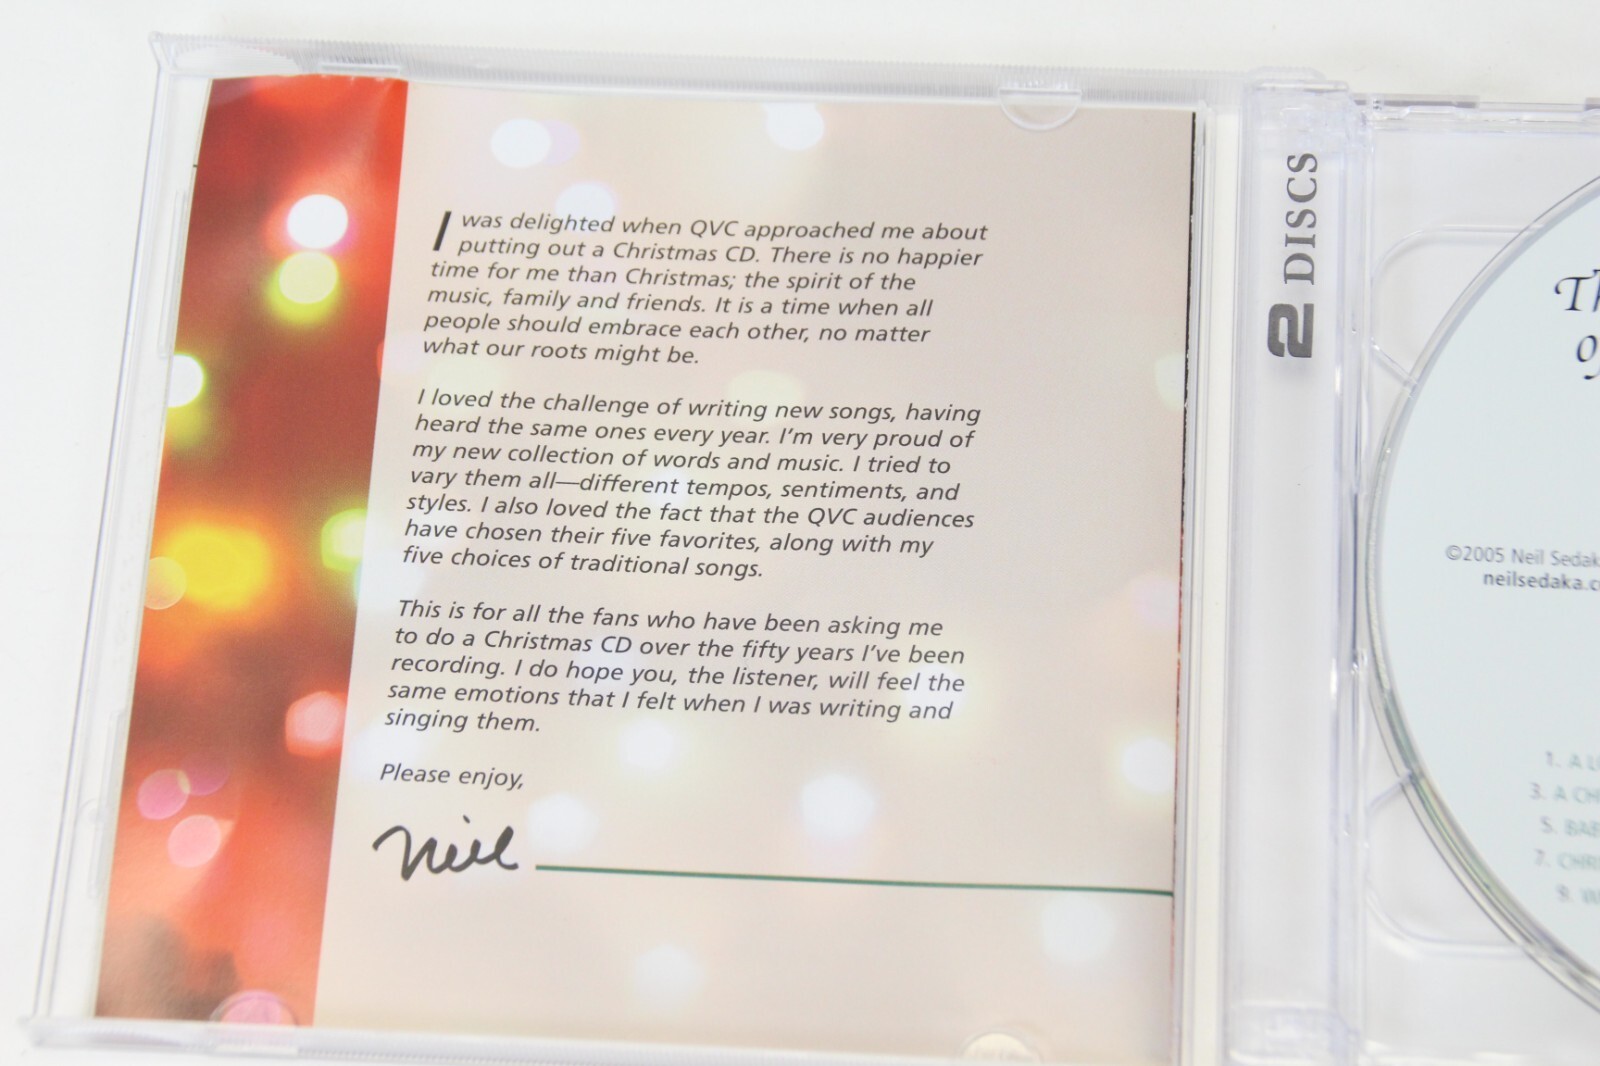 I was delighted when QVC approached me about
putting out a Christmas CD. There is no happier
time for me than Christmas; the spirit of the
music, family and friends. It is a time when all
people should embrace each other, no matter
what our roots might be.
I loved the challenge of writing new songs, having
heard the same ones every year. I'm very proud of
my new collection of words and music. I tried to
vary them all—different tempos, sentiments, and
styles. I also loved the fact that the QVC audiences
have chosen their five favorites, along with my
five choices of traditional songs.
This is for all the fans who have been asking me
to do a Christmas CD over the fifty years I've been
recording. I do hope you, the listener, will feel the
same emotions that I felt when I was writing and
singing them.
Please enjoy,
Neil
2 DISCS
©2005 Neil
1. A
3. A
5.
7.
9.